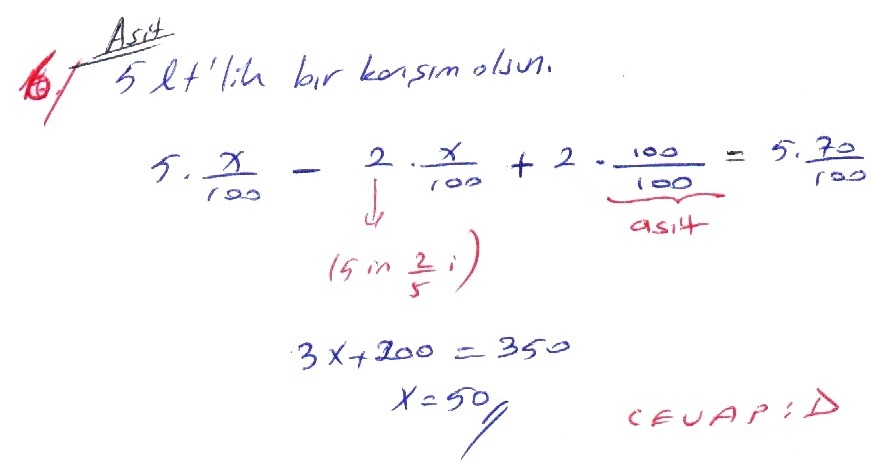 Asit
6.) 5 lt'lik bir karışım olsun.
5 . x/100 - 2 . x/100 + 2 . 100/100 = 5 . 70/100
asit
(5 in 2/5 i)
3x+200 = 350
x = 50
CEVAP : D